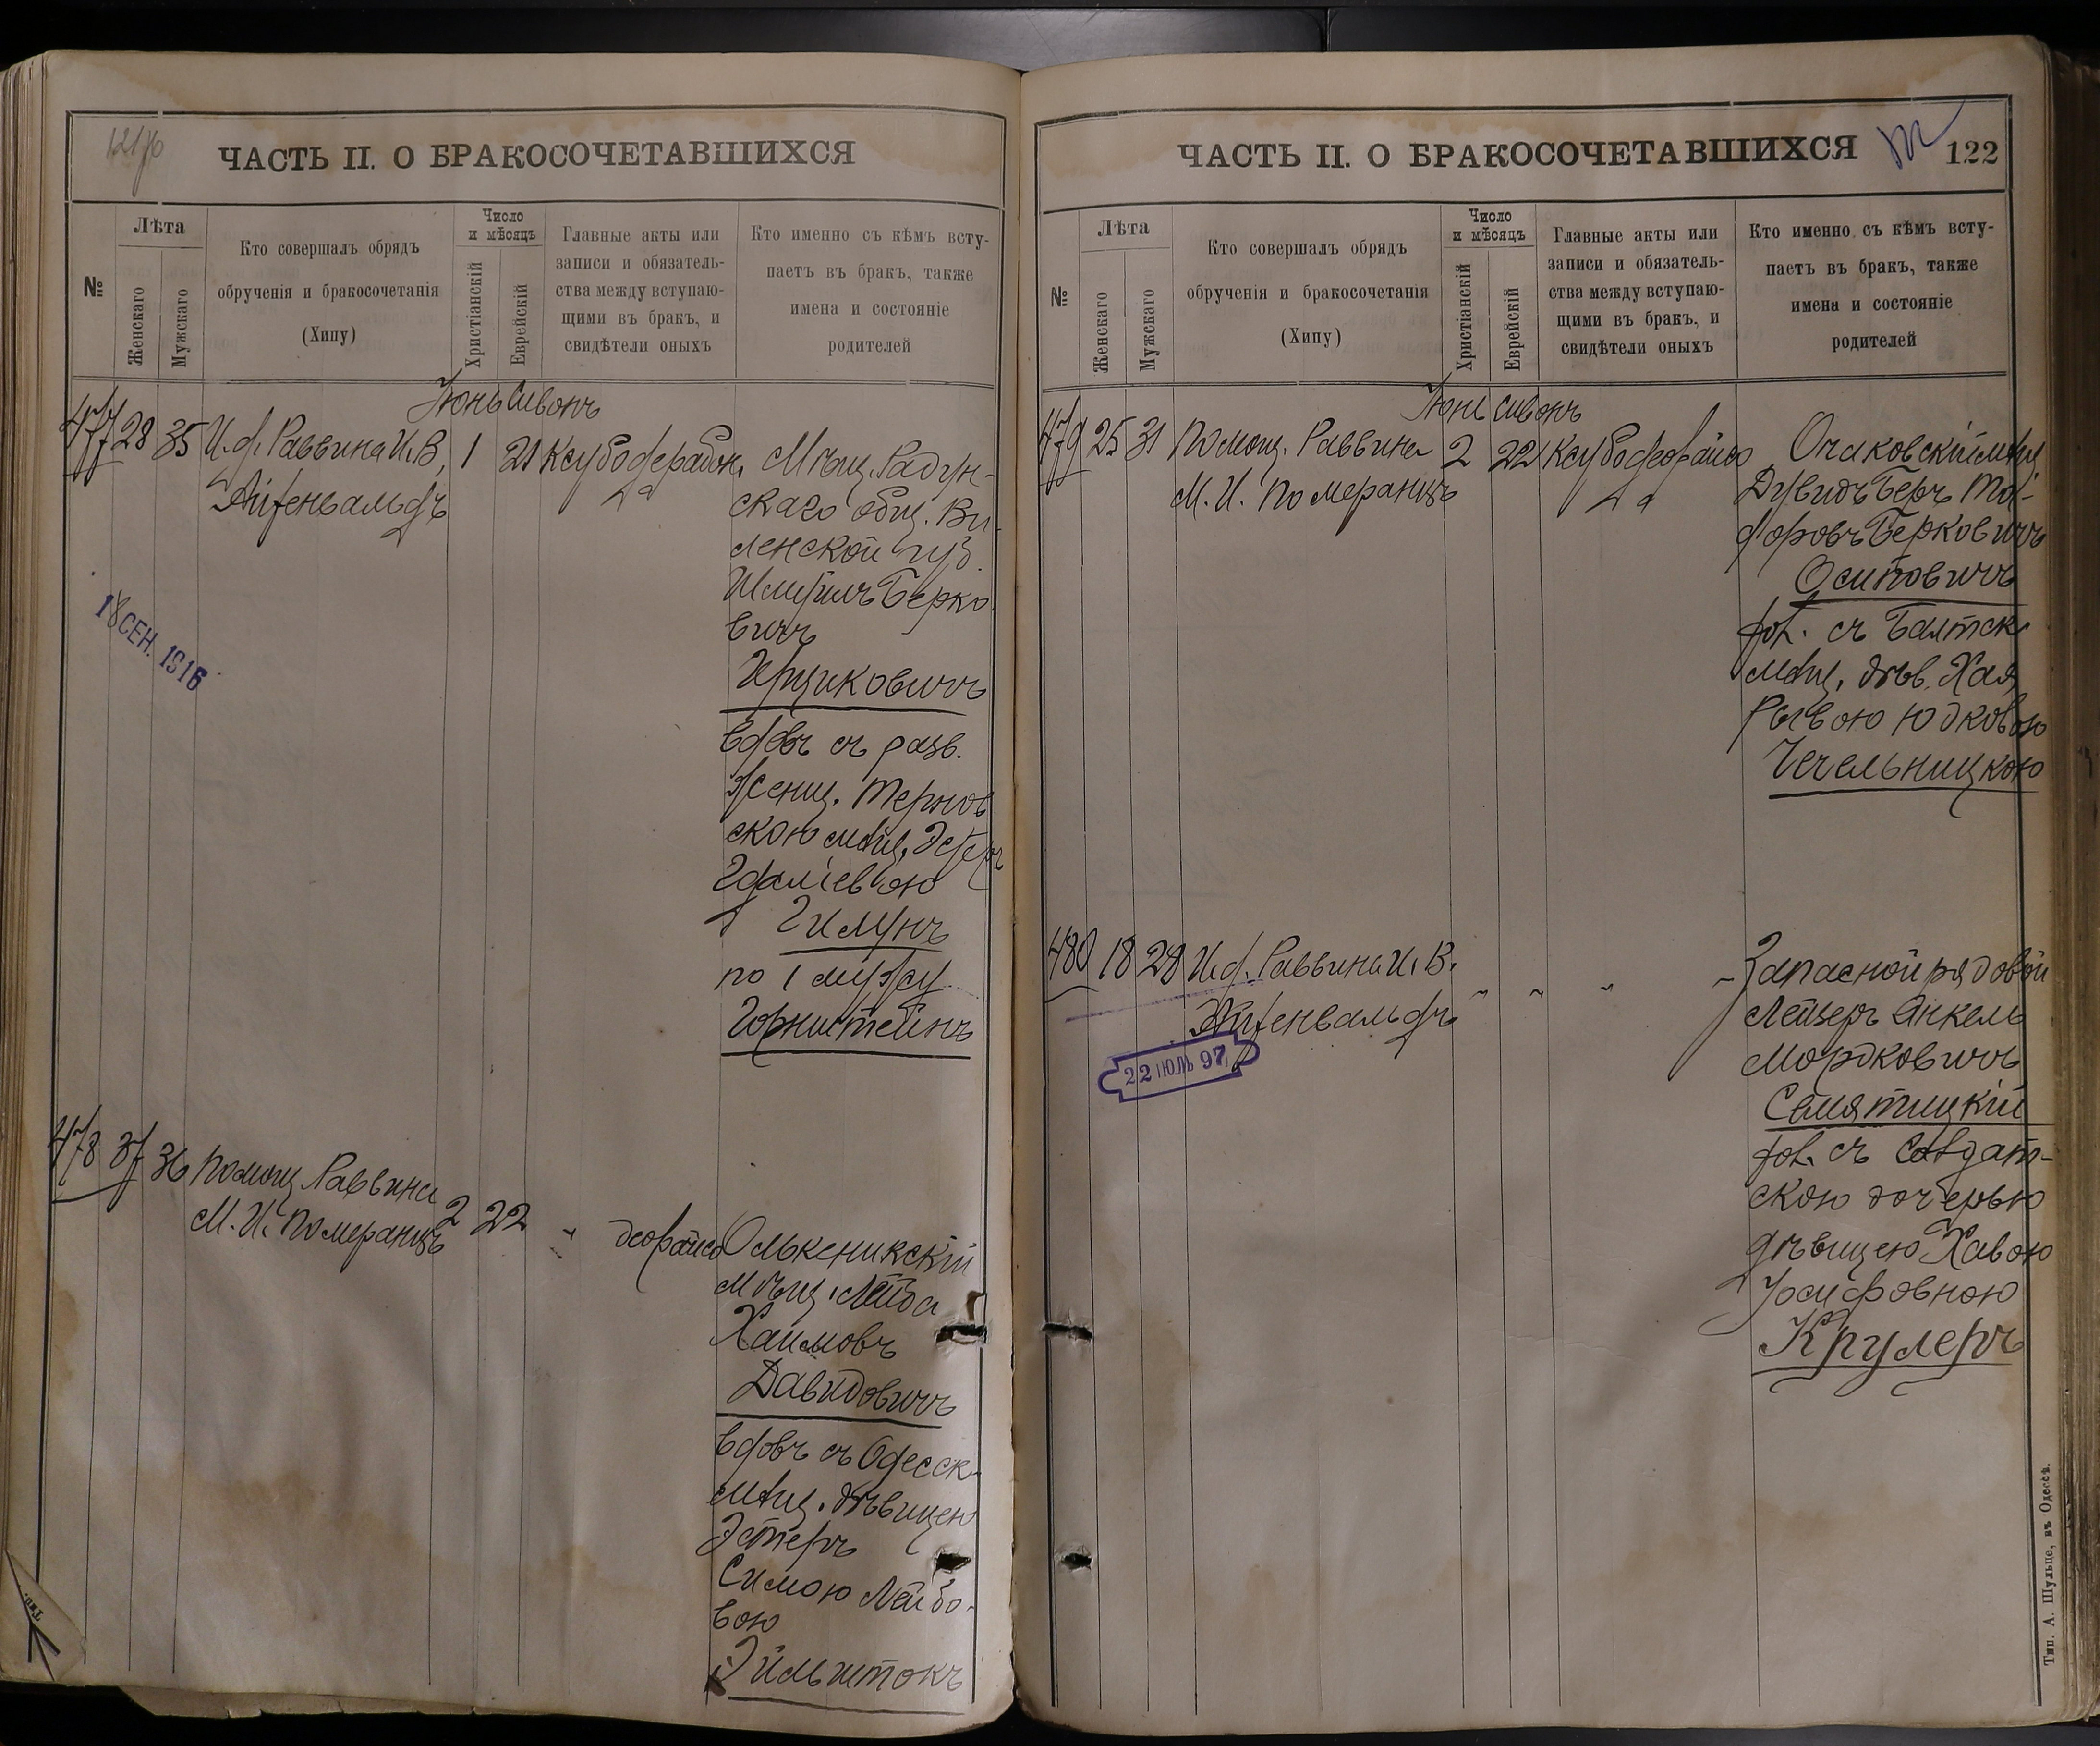 ЧАСТЬ II. О БРАКОСОЧЕТАВШИХСЯ
№
Лѣта
Женскаго
Мужскаго
Кто совершалъ обрядъ
обрученія и бракосочетанія
(Хипу)
Число
и мѣсяцъ
Христіанскій
Еврейскій
Главные акты или
записи и обязатель-
ства между вступаю-
щими въ бракъ, и
свидѣтели оныхъ
Кто именно съ кѣмъ всту-
паетъ въ бракъ, также
имена и состояніе
родителей
Іюнь Сивонъ
477 28 35 И. д. Раввина И. В. 1 21
18 СЕН. 1916
Мѣщ. Радун-
скаго общ. Ви-
ленской губ.
Берко
вичъ
вдовъ съ разв.
женщ. Тернов
скою мѣщ.
Гдаліевою
Гимунъ
по 1 мужу
Горнштейнъ
478 37 36 Помощ. Раввина 2 22
М. И. Померанцъ
Олькеникскій
мѣщ. Лейба
Хаимовъ
Давидовичъ
вдовъ съ Одесск.
мѣщ. дѣвицею
Эстеръ
Симою Лейбо-
вою
ЧАСТЬ II. О БРАКОСОЧЕТАВШИХСЯ
122
№
Лѣта
Женскаго
Мужскаго
Кто совершалъ обрядъ
обрученія и бракосочетанія
(Хипу)
Число
и мѣсяцъ
Христіанскій
Еврейскій
Главные акты или
записи и обязатель-
ства между вступаю-
щими въ бракъ, и
свидѣтели оныхъ
Кто именно съ кѣмъ всту-
паетъ въ бракъ, также
имена и состояніе
родителей
Іюнь Сивонъ
479 25 31 Помощ. Раввина 2 22
М. И. Померанцъ
Очаковскій мѣщ.
Дувидъ Беръ
Берковичъ
Осиповичъ
хол. съ Балтск.
мѣщ. дѣв. Хая
Юдковою
Чечельницкою
480 18 28 И. д. Раввина И. В.
22 ІЮЛЬ 97
Запасной рядовой
Лейзеръ Янкель
Мордковичъ
Семятицкій
хол. съ солдат-
скою дочерью
дѣвицею Хавою
Іосифовною
Крулеръ
Тип. А. Шульце, въ Одессѣ.